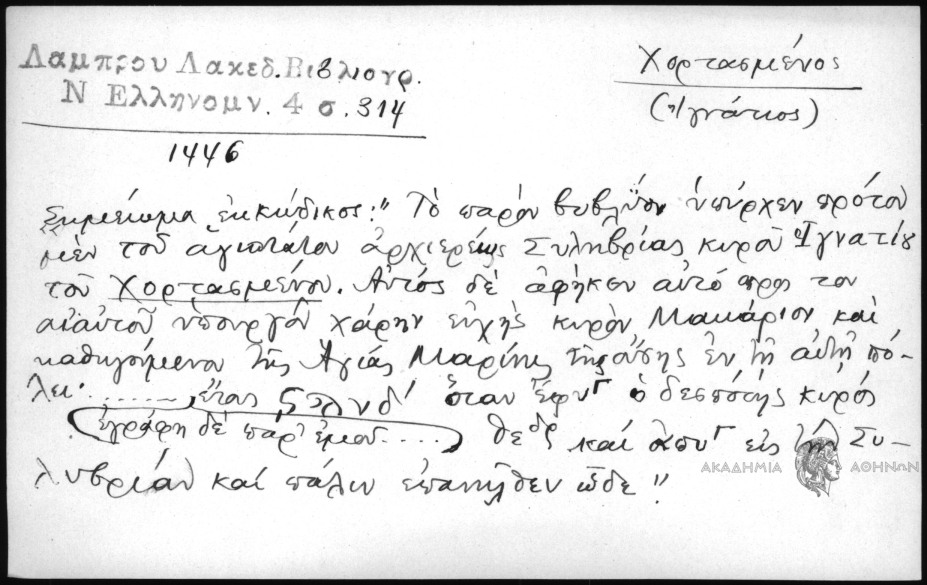 Λαμπρου Λακεδ. Βιβλιογρ.
Ν Ελληνομν. 4 σ. 314
Χορτασμένος
(Ἰγνάτιος)
1446
Σημείωμα ἐκ κώδικος: " Τὸ παρὸν βυβλύον ὑπύρχεν πρότον
μὲν τοῦ ἁγιοτάτου ἀρχιερέως Συληβρίας κυροῦ Ἰγνατίου
τοῦ Χορτασμένου. Αὐτὸς δὲ ἀφῆκεν αὐτό προς τον
αὐτοῦ ὑπουργὸν χάρην εὐχῆς κυρὸν Μακάριον καὶ
καθηγούμενον τῆς Ἁγίας Μαρίνης τῆς ἐν τῇ αὐτῇ πό-
λει. ........, ἔτους ϛϡνδ' ὅταν ἔφυγ ὁ δεσπότης κυρός
ἐγράφη δὲ παρ' ἐμοῦ....
Θεδρ καί ἀπυγ εἰς τὴ Συ-
λυβρίαν καί πάλιν ἐπανῆλθεν ὧδε "
ΑΚΑΔΗΜΙΑ ΑΘΗΝΩΝ